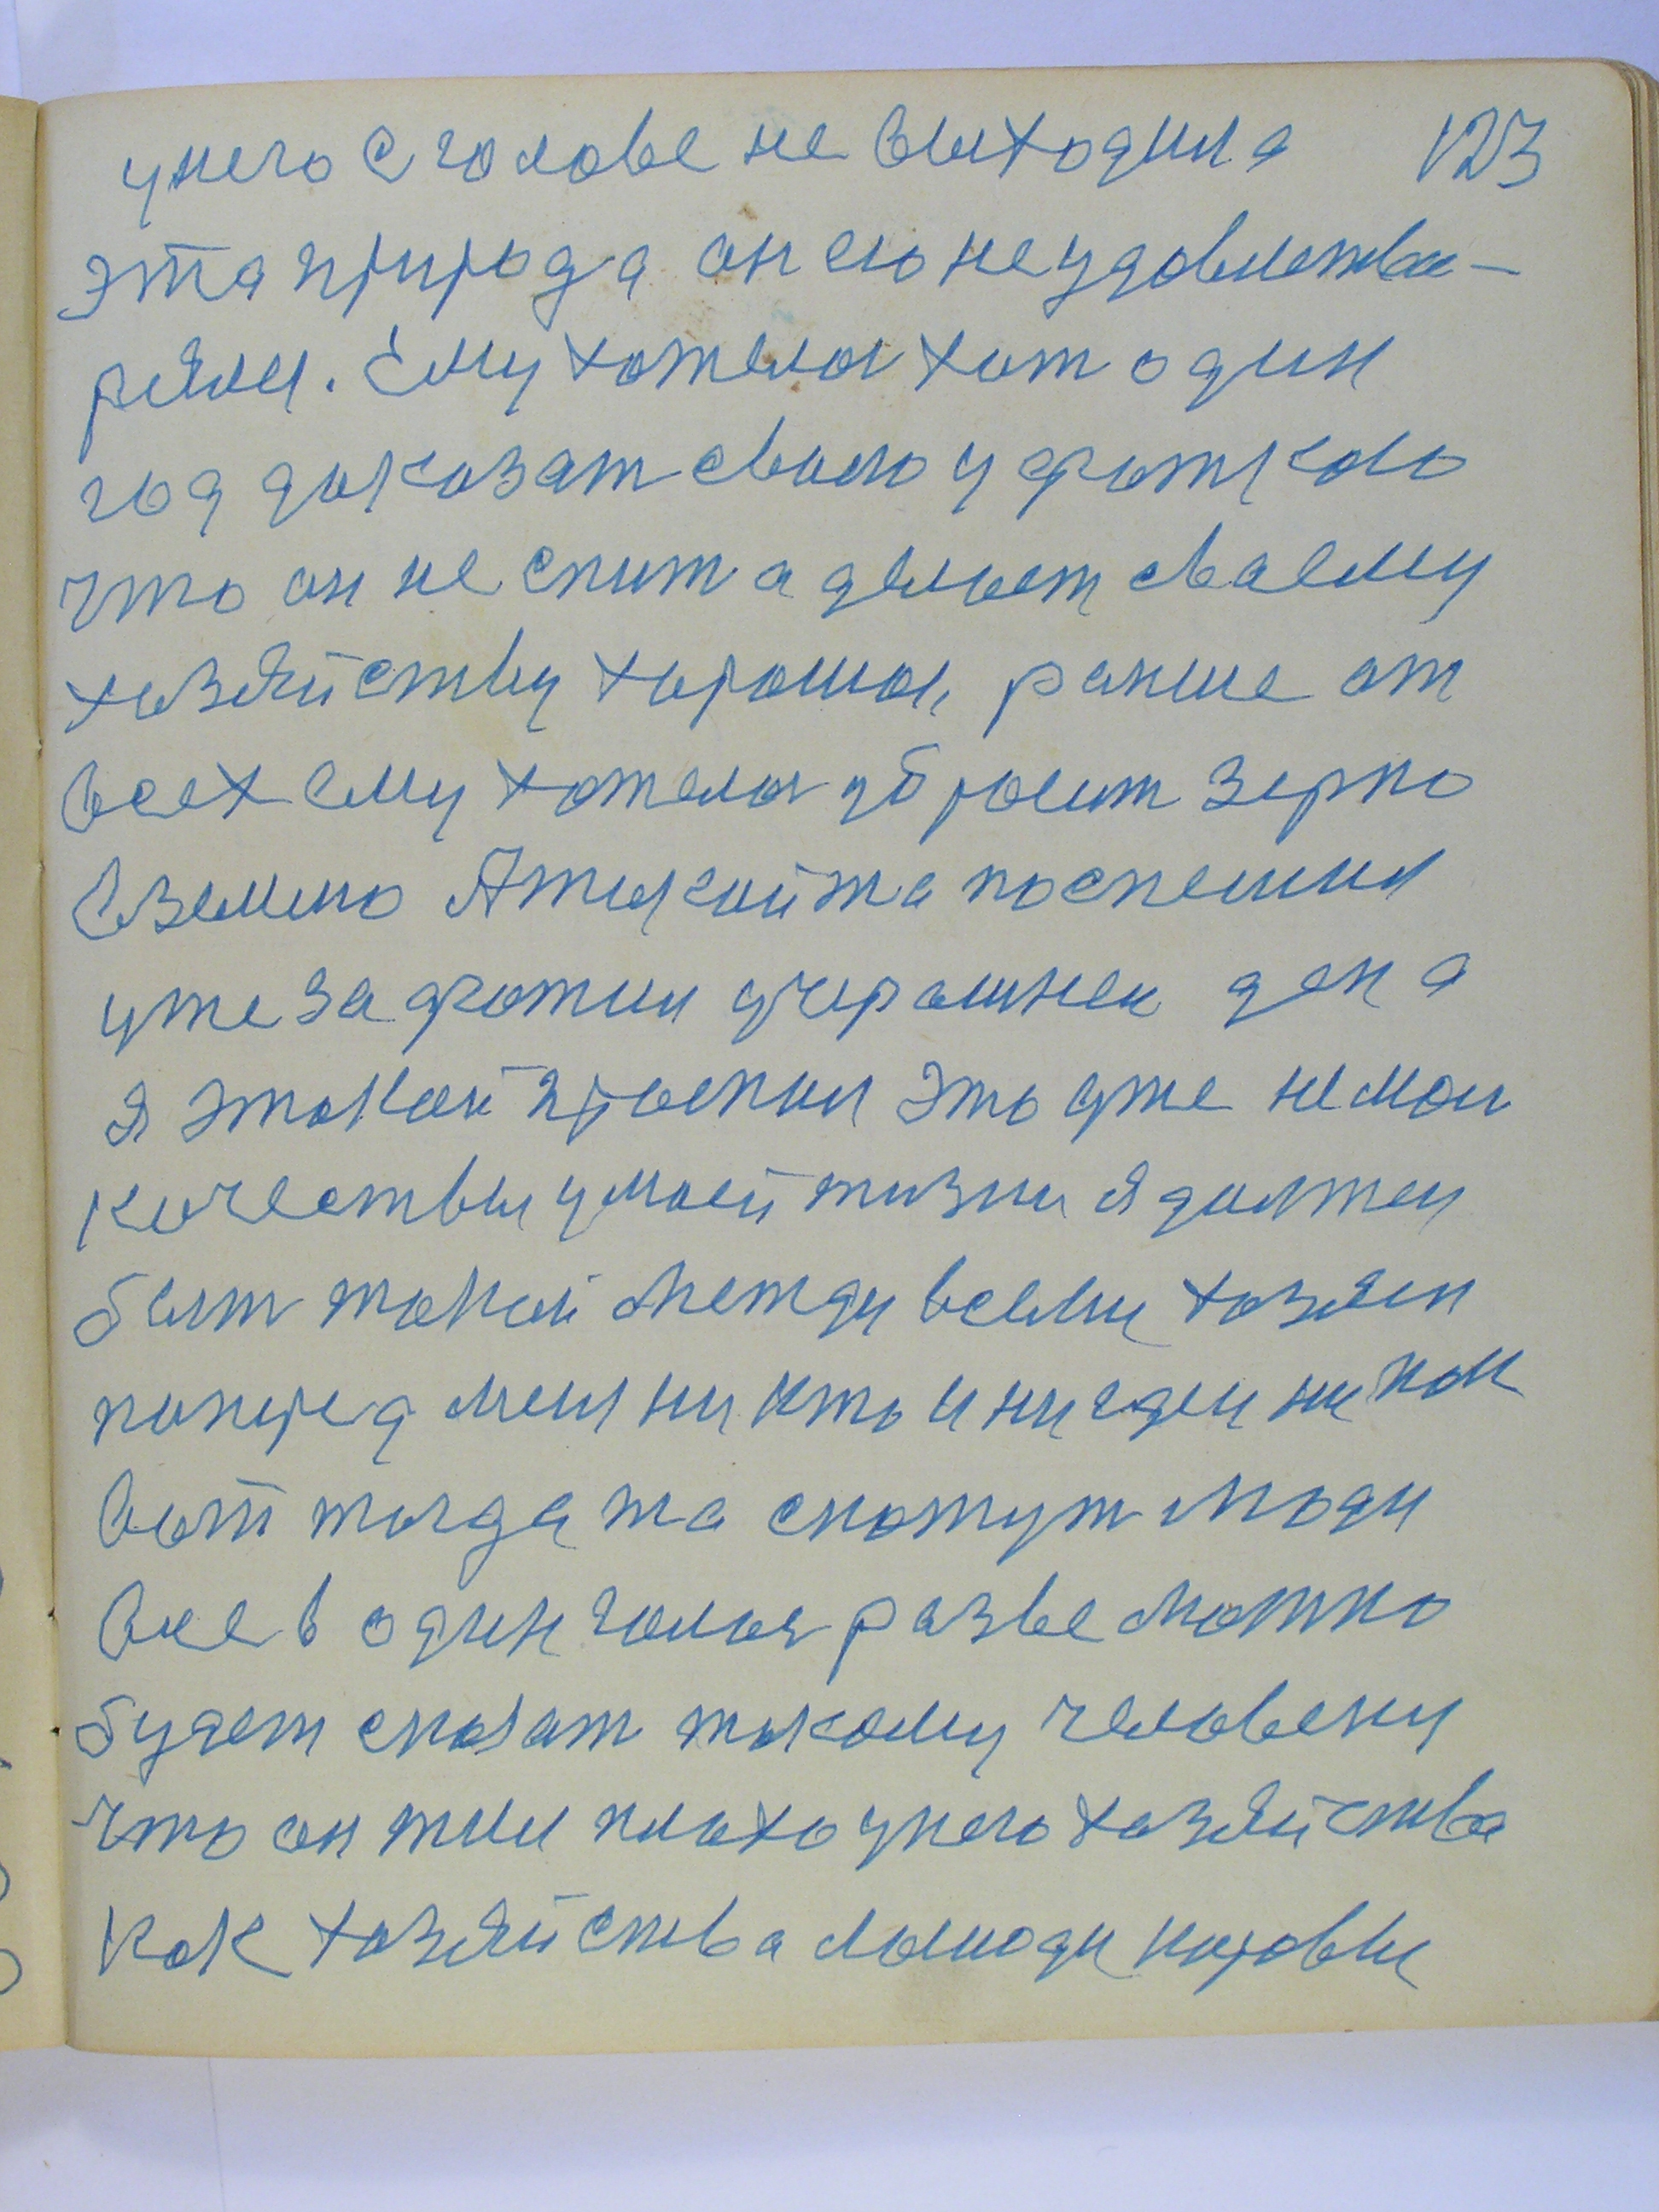 унего с голове не выходила 123
эта природа он ею не удовлетва-
рял. Ему хотелоя хот один
год доказат свою ухваткою
что он не спит а делает сваему
хозяйству хорошои раньше от
всех ему хотелоя убросит зерно
вземлю Атикойта поспешил
уже захватил вчерашнеи ден а
я этокой проспал Это уже не мои
качествы умоей жизни я должен
быт токои между всеми хозяин
поперед меня ни кто и ни где и ни как
вот тогда та скажут люди
все в один голоя разве можно
будет сказат такому человеку
что он жил плохо унего хозяйства
как хозяйства лошоди коровы